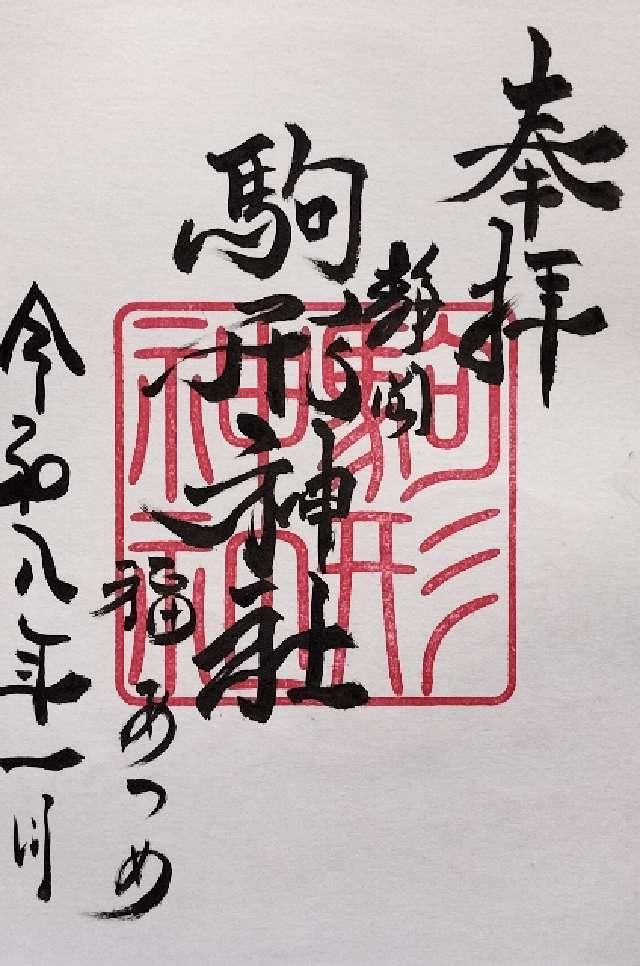 奉拝
静岡
駒形神社
福あつめ
令和八年一月
駒形神社